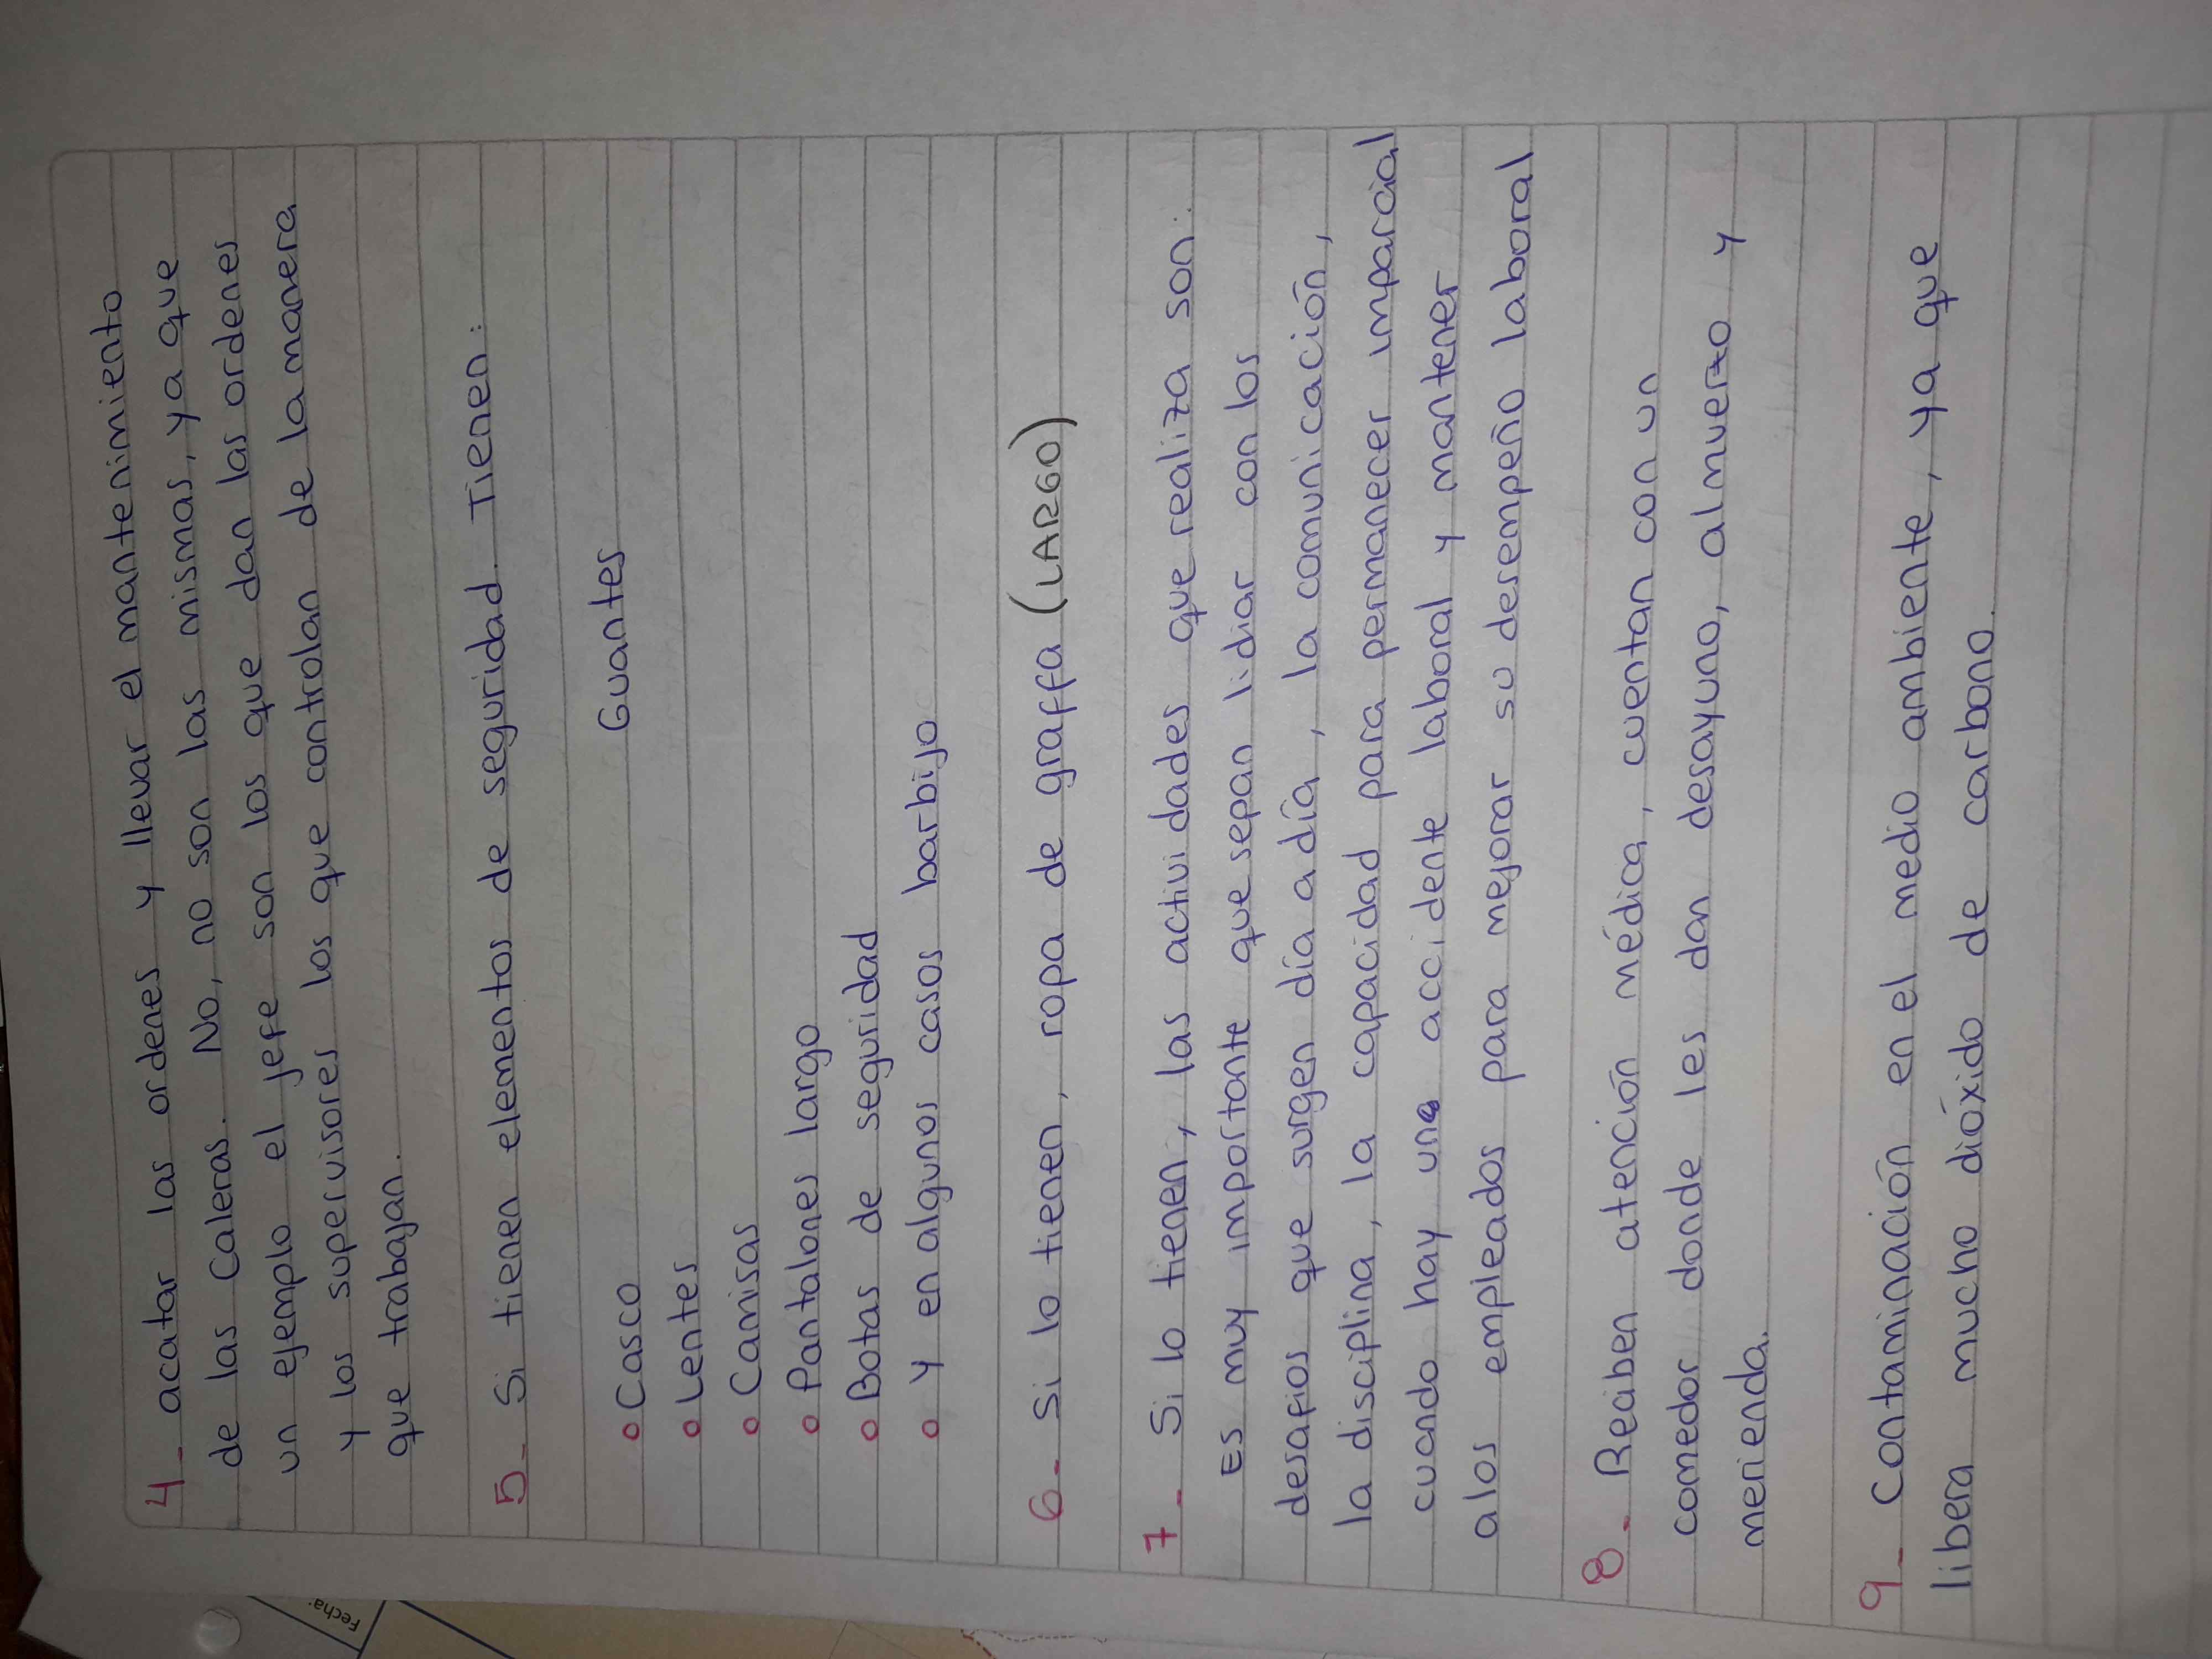 4_ acatar las ordenes y llevar el mantenimiento
de las Caleras. No, no son las mismas, ya que
un ejemplo el jefe son los que dan las ordenes
y los supervisores los que controlan de la manera
que trabajan.
5_ Si tienen elementos de seguridad. Tienen:
Casco Guantes
Lentes
Camisas
Pantalones largo
Botas de seguridad
y en algunos casos barbijo
6_ Si lo tienen, ropa de graffa (LARGO)
7_ Si lo tienen, las actividades que realiza son:
Es muy importante que sepan lidiar con los
desafíos que surgen día a día, la comunicación,
la disciplina, la capacidad para permanecer imparcial
cuando hay una accidente laboral y mantener
alos empleados para mejorar su desempeño laboral
8_ Reciben atención médica, cuentan con un
comedor donde les dan desayuno, almuerzo y
merienda.
9_ Contaminación en el medio ambiente, ya que
libera mucho dióxido de carbono.
Fecha: